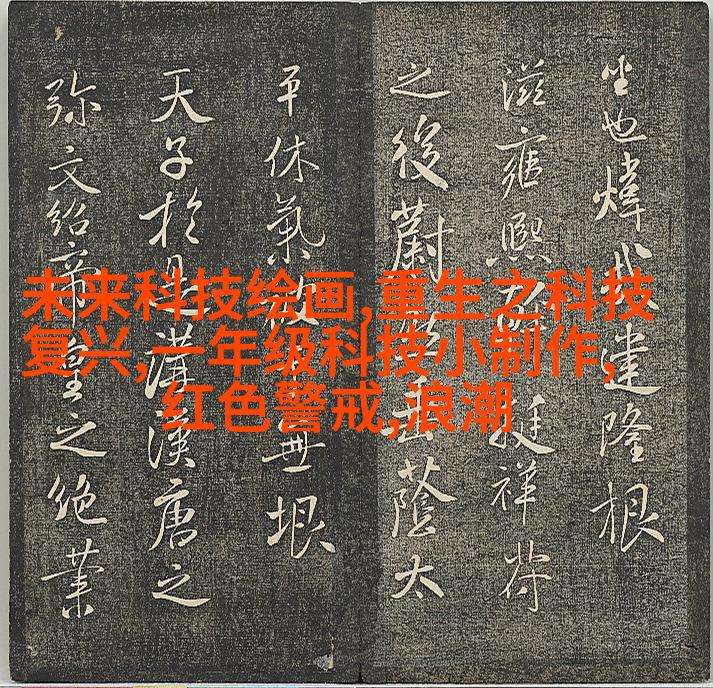 未来科技绘画,重生之科技
复兴,一年级科技小制作,
红色警戒,浪潮
也煒建隆根
滋雍熙挺祥符
之後蔚垂蔭太
平休氣無垠
天子於是講漢唐之
弥文紹帝皇之絶業